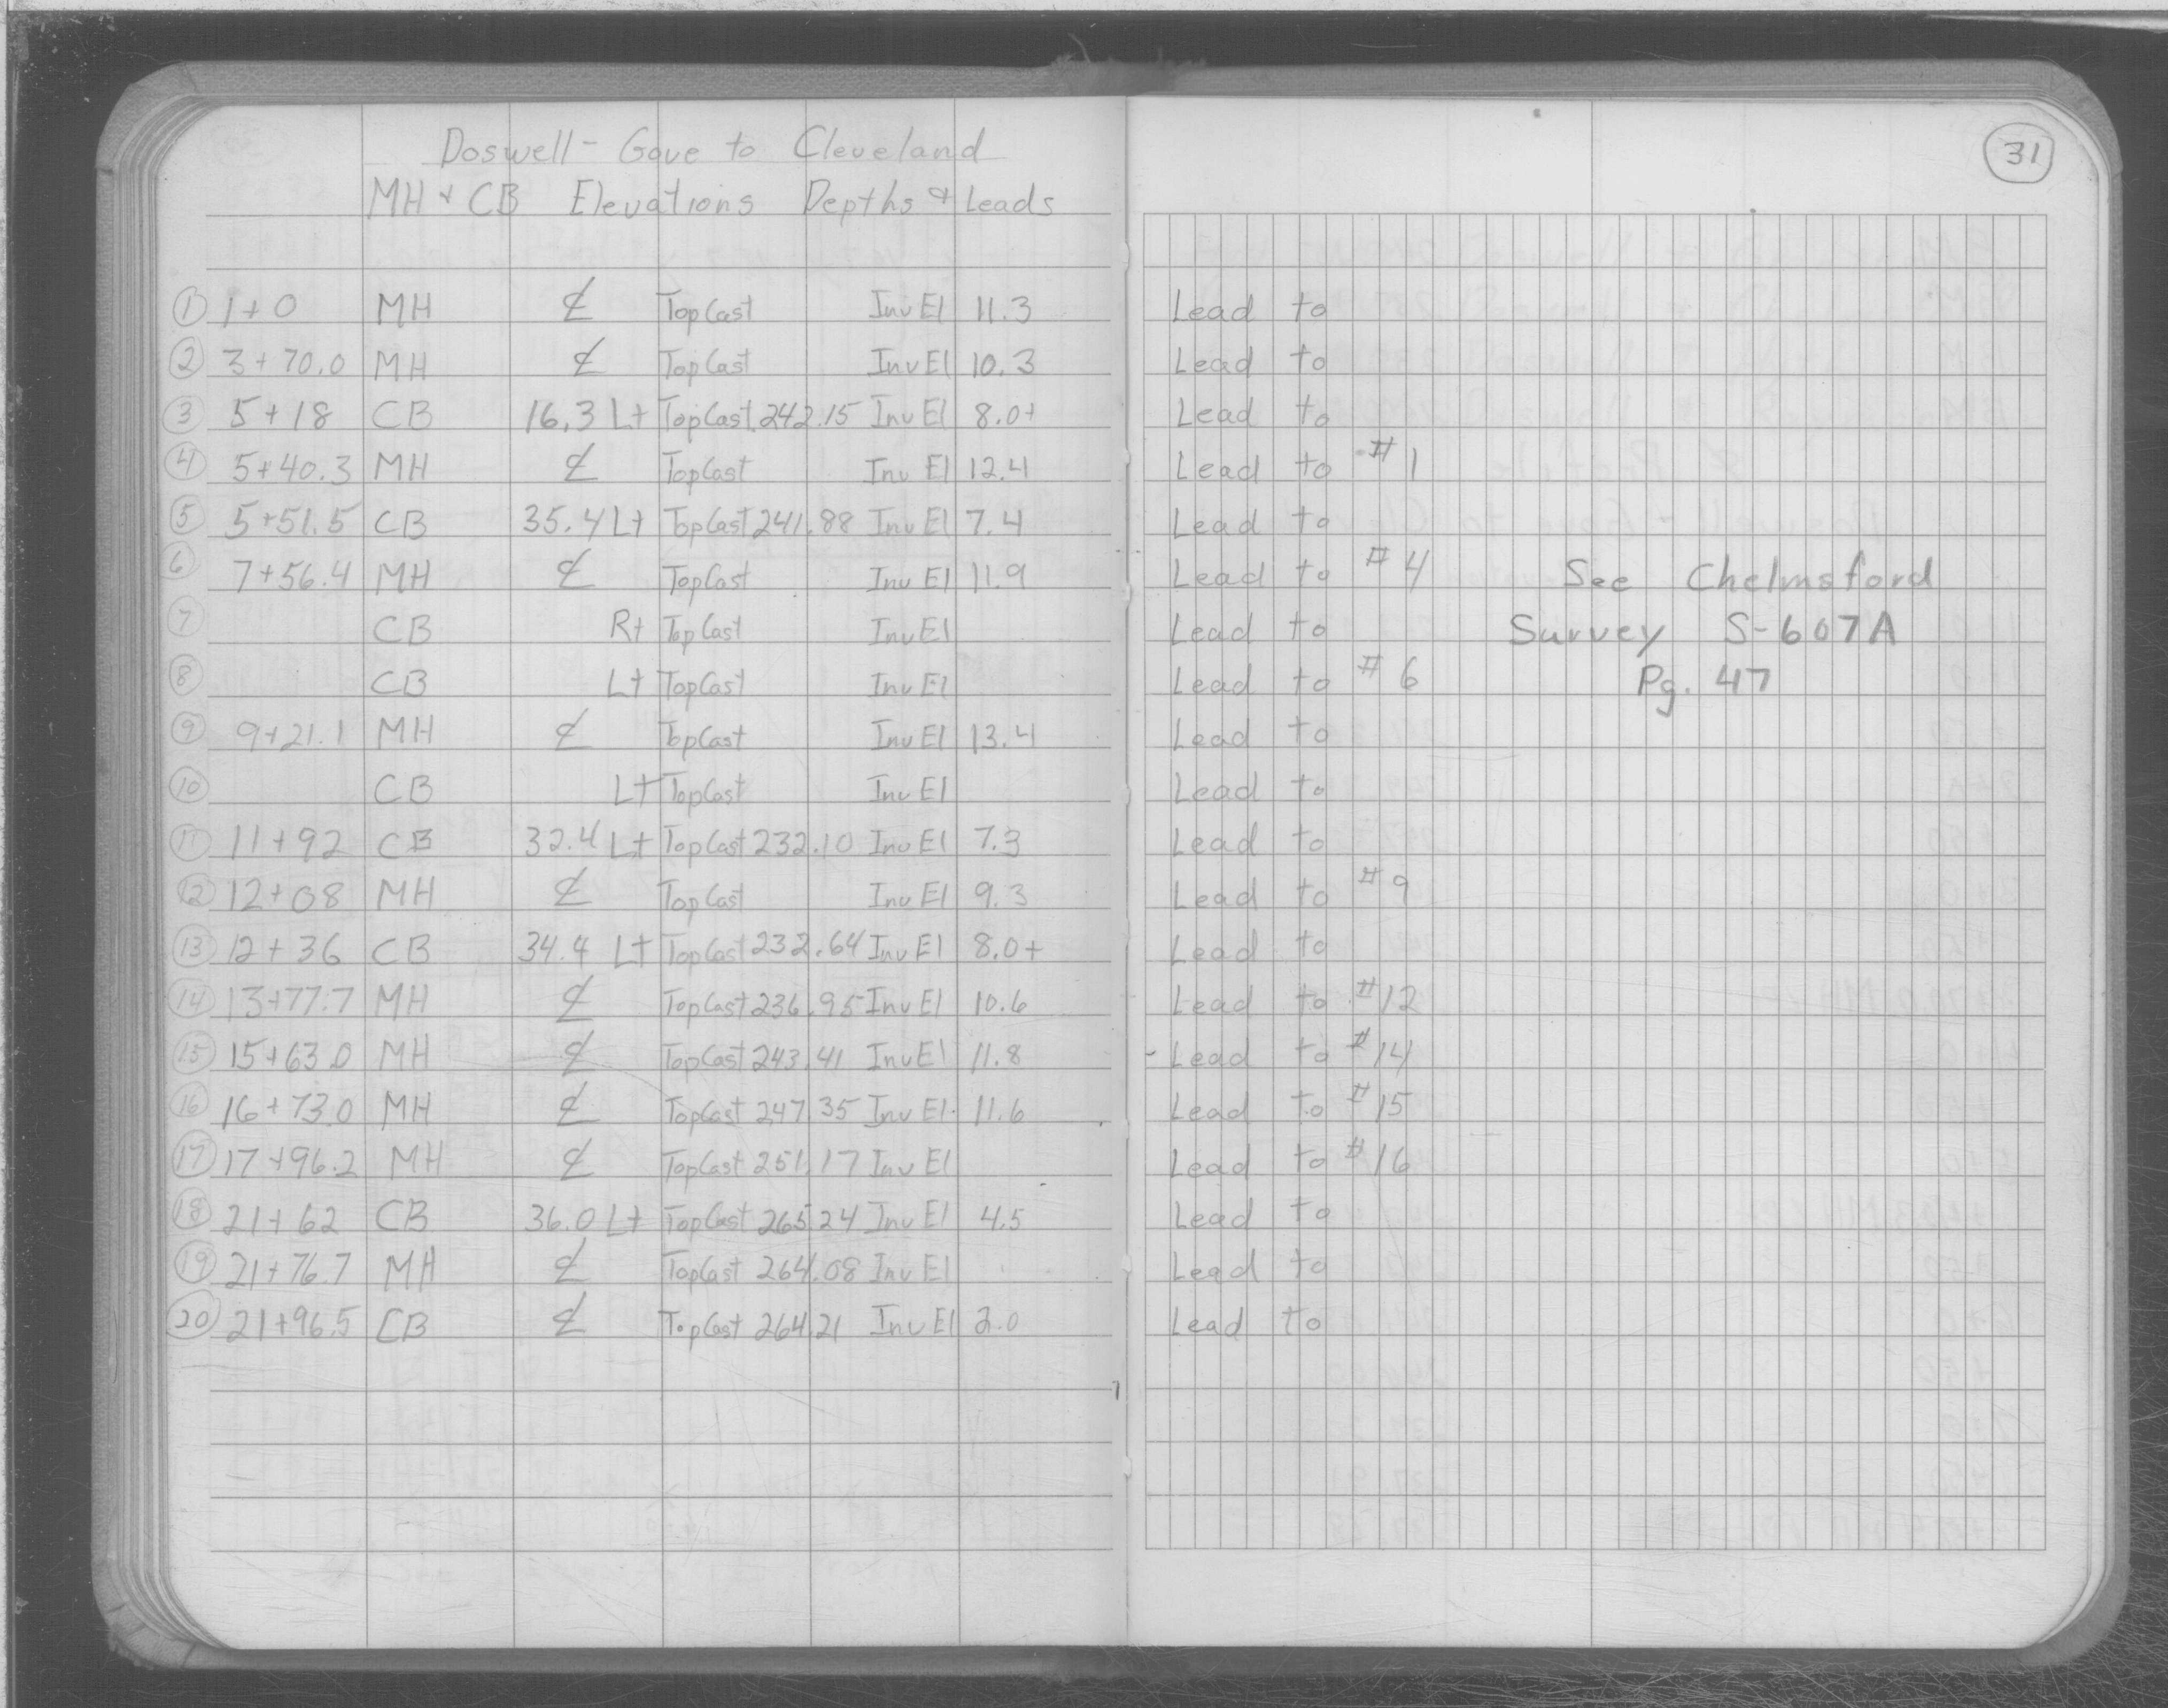 31
Doswell - Gove to Cleveland
MH + CB Elevations Depths & Leads
① 1+0 MH ℄ TopCast InvEl 11.3 Lead to
② 3+70.0 MH ℄ TopCast InvEl 10.3 Lead to
③ 5+18 CB 16.3 Lt TopCast 242.15 InvEl 8.0+ Lead to
④ 5+40.3 MH ℄ TopCast InvEl 12.4 Lead to #1
⑤ 5+51.5 CB 35.4 Lt TopCast 241.88 InvEl 7.4 Lead to
⑥ 7+56.4 MH ℄ TopCast InvEl 11.9 Lead to #4 See Chelmsford
⑦ CB Rt TopCast InvEl Lead to Survey S-607A
⑧ CB Lt TopCast InvEl Lead to #6 Pg. 47
⑨ 9+21.1 MH ℄ TopCast InvEl 13.4 Lead to
⑩ CB Lt TopCast InvEl Lead to
⑪ 11+92 CB 32.4 Lt TopCast 232.10 InvEl 7.3 Lead to
⑫ 12+08 MH ℄ TopCast InvEl 9.3 Lead to #9
⑬ 12+36 CB 34.4 Lt TopCast 232.64 InvEl 8.0+ Lead to
⑭ 13+77.7 MH ℄ TopCast 236.95 InvEl 10.6 Lead to #12
⑮ 15+63.0 MH ℄ TopCast 243.41 InvEl 11.8 Lead to #14
⑯ 16+73.0 MH ℄ TopCast 247.35 InvEl. 11.6 Lead to #15
⑰ 17+96.2 MH ℄ TopCast 251.17 InvEl Lead to #16
⑱ 21+62 CB 36.0 Lt TopCast 265.24 InvEl 4.5 Lead to
⑲ 21+76.7 MH ℄ TopCast 264.08 InvEl Lead to
⑳ 21+96.5 CB ℄ TopCast 264.21 InvEl 2.0 Lead to